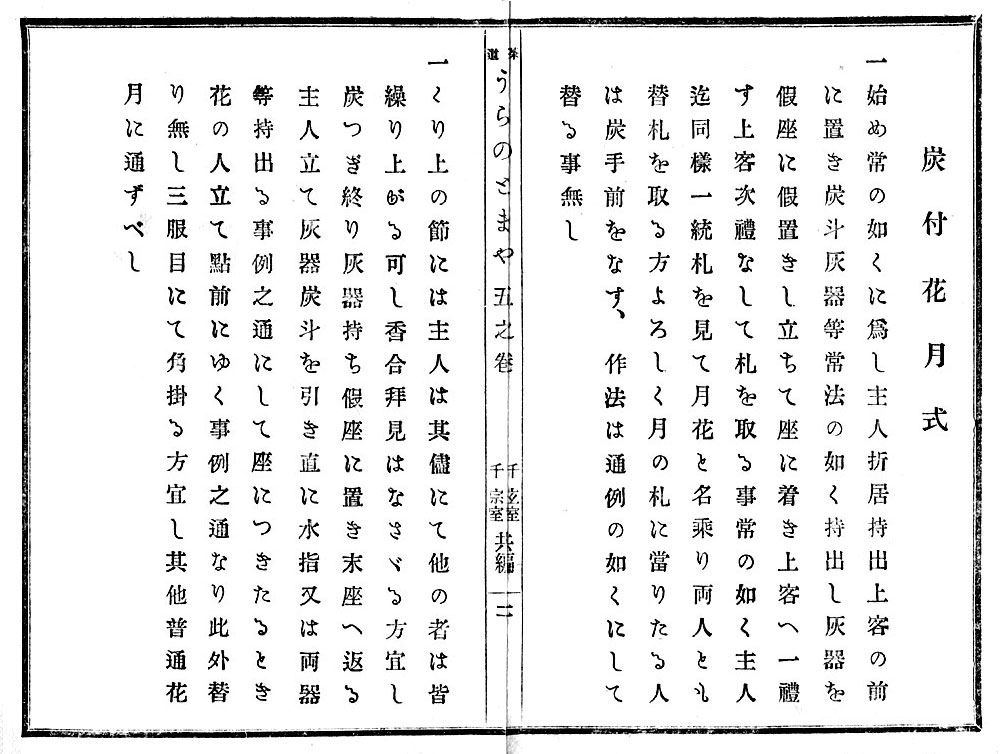 炭付花月式
一始め常の如くに爲し主人折居持出上客の前
に置き炭斗灰器等常法の如く持出し灰器を
假座に假置きし立ちて座に着き上客へ一禮
す上客次禮なして札を取る事常の如く主人
迄同樣一統札を見て月花と名乘り両人とも
替札を取る方よろしく月の札に當りたる人
は炭手前をなす、作法は通例の如くにして
替る事無し
茶道
うらのとまや五之巻
千玄室
千宗室
共編
二
一くり上の節には主人は其儘にて他の者は皆
繰り上がる可し香合拜見はなさゞる方宜し
炭つぎ終り灰器持ち假座に置き末座へ返る
主人立て灰器炭斗を引き直に水指又は両器
等持出る事例之通にして座につきたるとき
花の人立て點前にゆく事例之通なり此外替
り無し三服目にて角掛る方宜し其他普通花
月に通ずべし